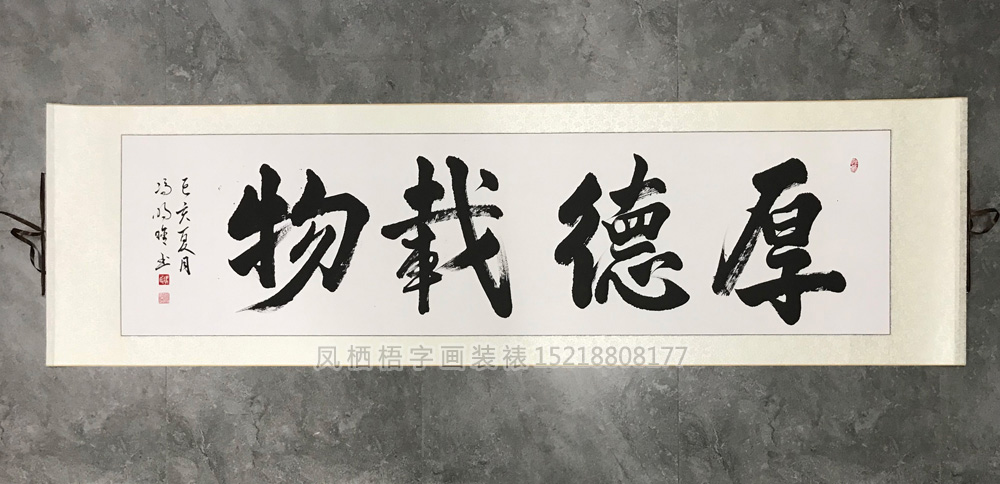 厚德载物
己亥夏月
凤栖梧字画装裱15218808177